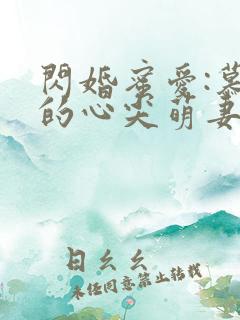 閃婚蜜愛:慕
的心尖萌妻
日幺幺
未经同意禁止转载